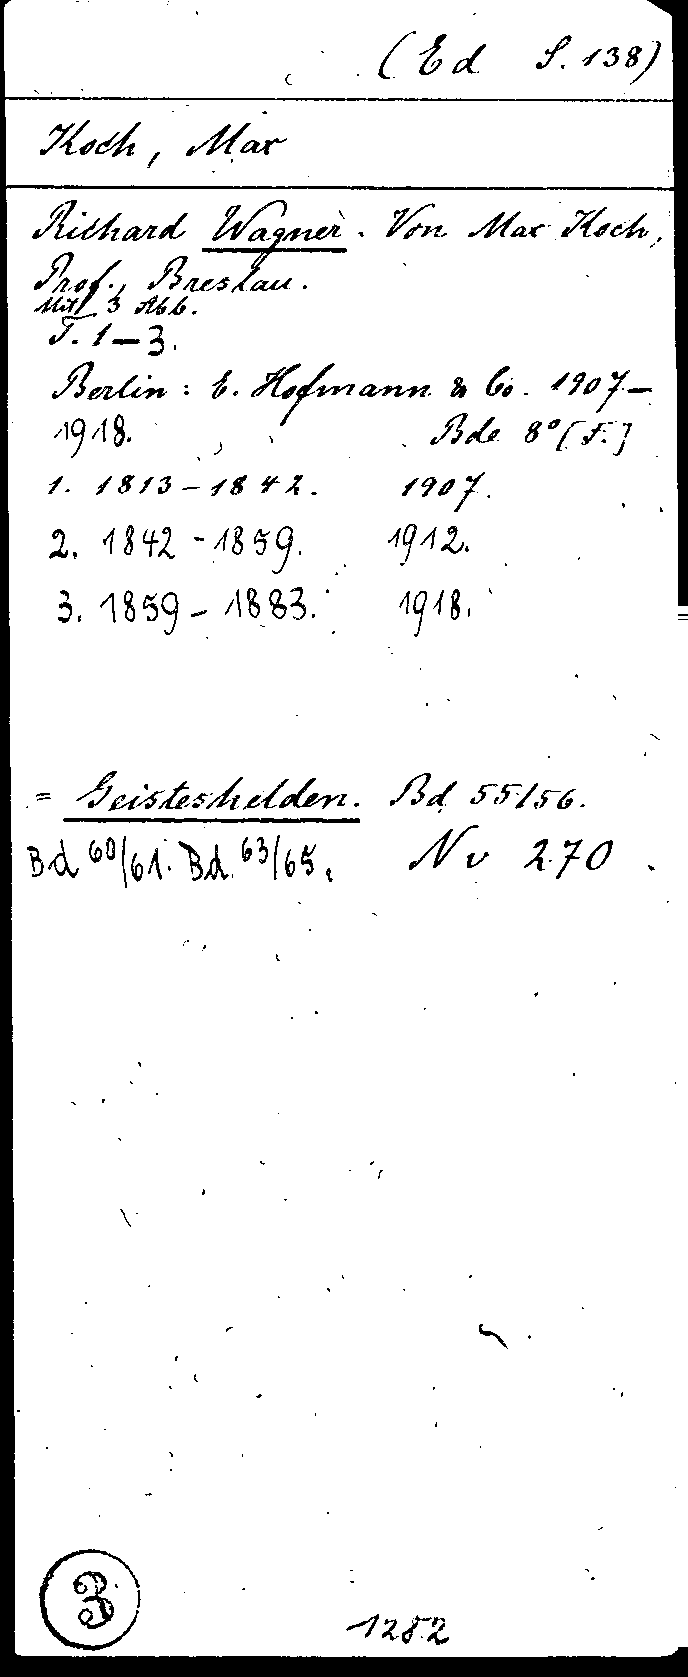 (Ed S. 138)
Koch, Max
Richard Wagner. Von Max Koch,
Prof., Breslau.
Mit 3 Abb.
T. 1–3.
Berlin: E. Hofmann & Co. 1907–
1918. Bde 8° [F.]
1. 1813–1842. 1907.
2. 1842–1859. 1912.
3. 1859–1883. 1918.
= Geisteshelden. Bd 55/56.
Bd 60/61. Bd. 63/65. Nv 270.
3
1282